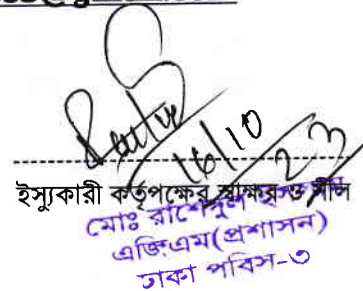 16/10/23
ইস্যুকারী কর্তৃপক্ষের স্বাক্ষর ও সীল
মোঃ
এজিএম(প্রশাসন)
ঢাকা পবিস-৩